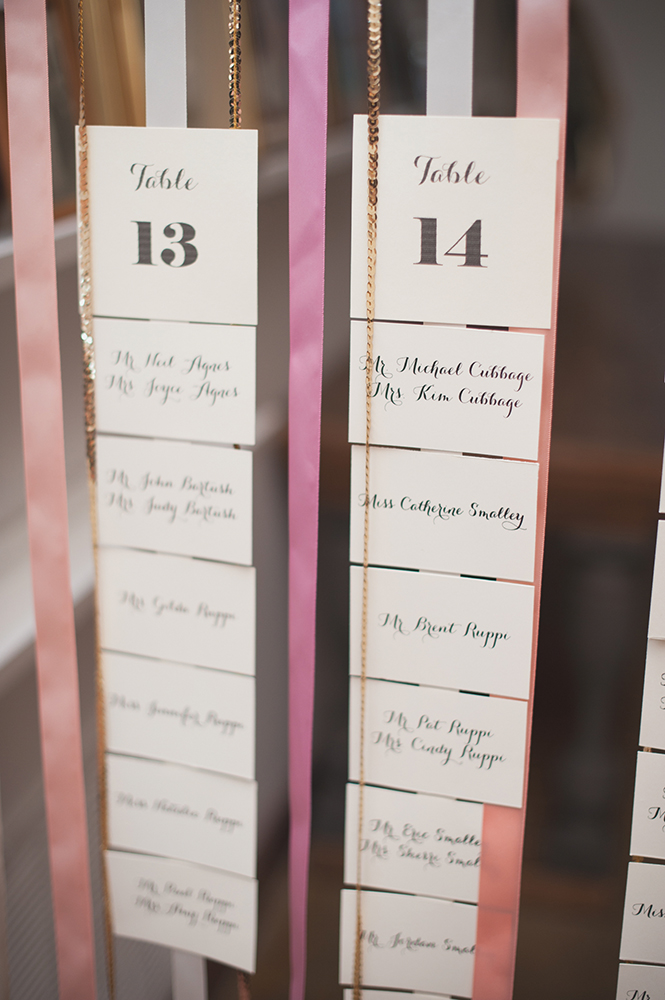 Table
13
Mr Neil Agnes
Mrs Joyce Agnes
Mr John Bartush
Mrs Judy Bartush
Mrs Ruppi
Miss Jennifer Ruppi
Miss Ruppi
Mr Ruppi
Mrs Ruppi
Table
14
Mr Michael Cubbage
Mrs Kim Cubbage
Miss Catherine Smalley
Mr Brent Ruppi
Mr Pat Ruppi
Mrs Cindy Ruppi
Mr Eric Smalle
Mrs Sherri Smal
Mr Jordan Smal